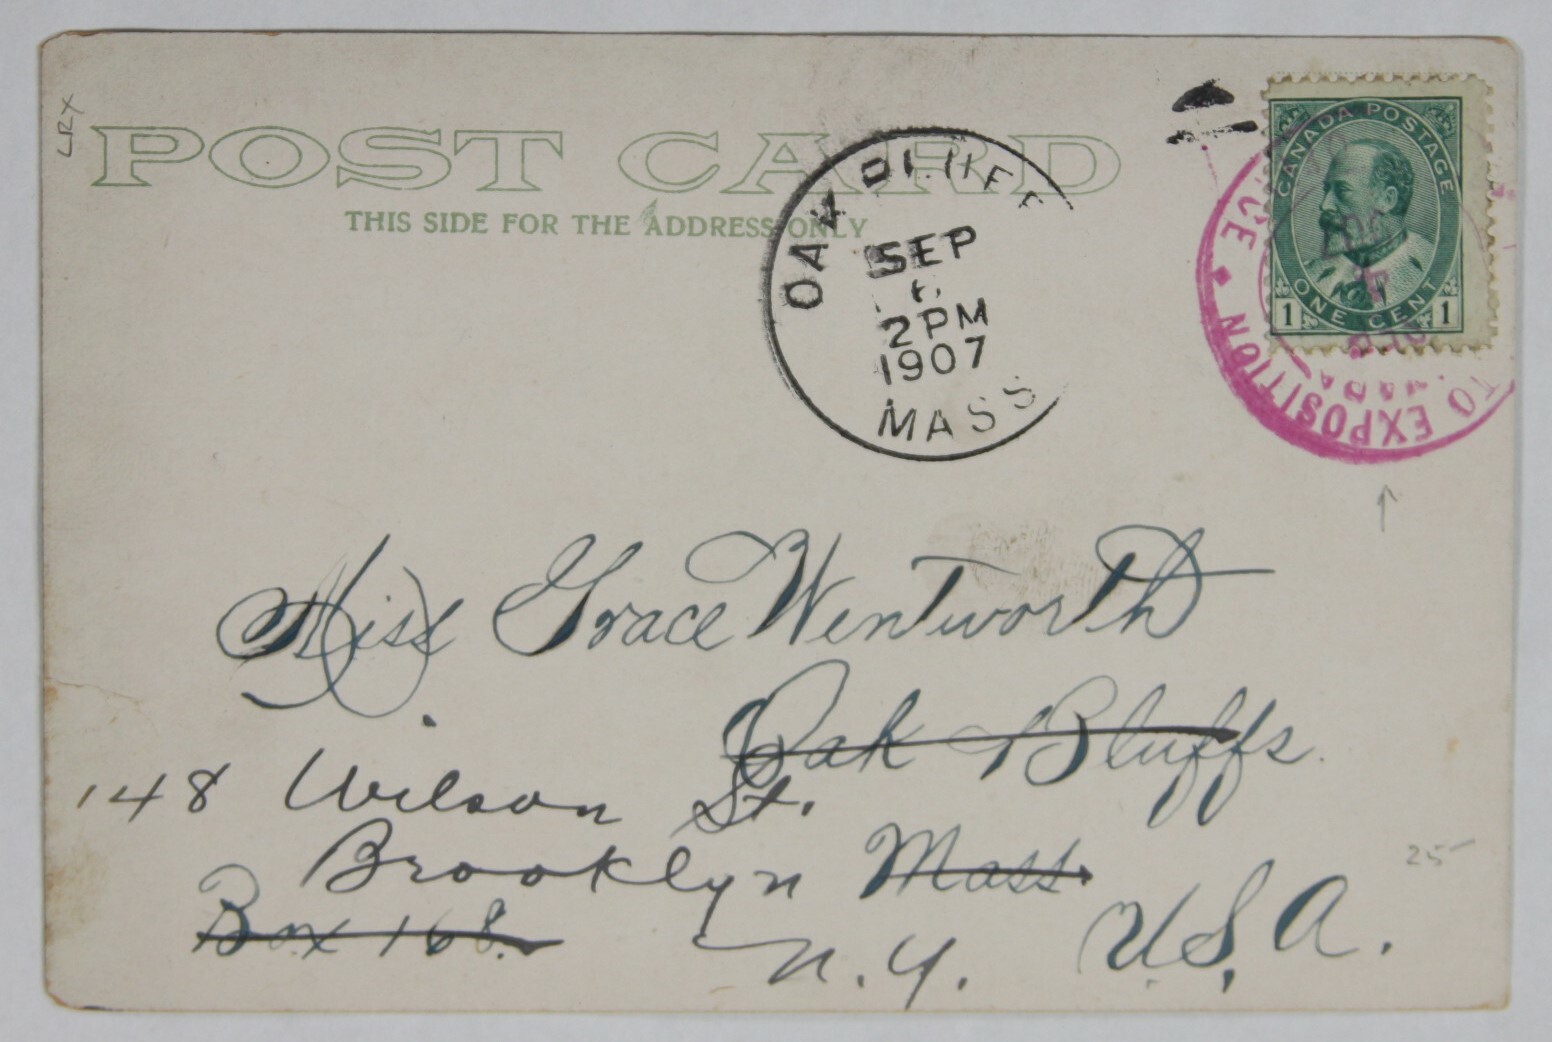 LRX
POST CARD
THIS SIDE FOR THE ADDRESS ONLY
OAK BLUFF
SEP
6
2 PM
1907
MASS
CANADA POSTAGE
ONE CENT
1 1
TO EXPOSITION
Miss Grace Wentworth
Oak Bluffs.
148 Wilson St.
Brooklyn Mass.
Box 168.
N.Y. U.S.A.
25